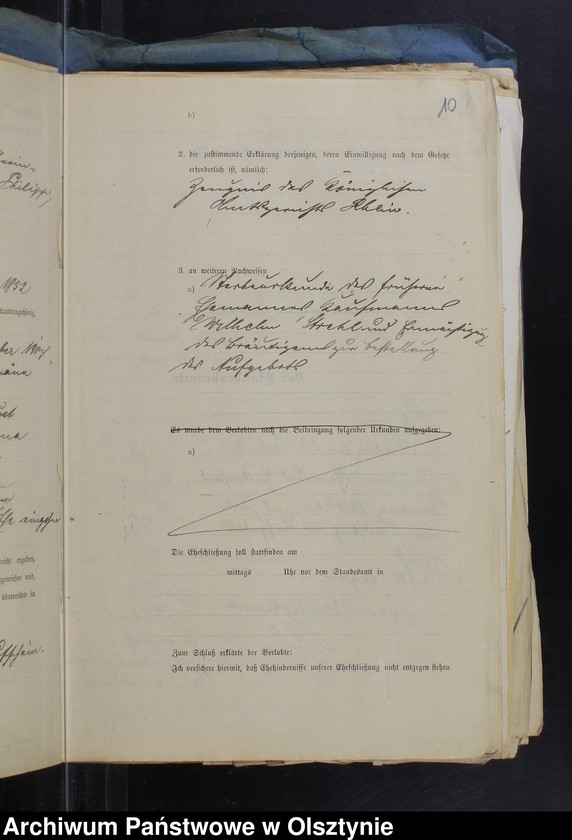 10
b)
2. die zustimmende Erklärung derjenigen, deren Einwilligung nach dem Gesetze
erforderlich ist, nämlich:
Zeugnis des Königlichen
Amtsgerichts Rhein.
3. an weiteren Nachweisen
a) Sterbeurkunde des früheren
Ehemannes Kaufmanns
Wilhelm Strehl und Ermächtigung
des Bräutigams zur Bestellung
des Aufgebots
Es wurde dem Verlobten noch die Beibringung folgender Urkunden aufgegeben:
a)
Die Eheschließung soll stattfinden am
mittags Uhr vor dem Standesamt in
Zum Schluß erklärte der Verlobte:
Ich versichere hiermit, daß Ehehindernisse unserer Eheschließung nicht entgegen stehen.
Archiwum Państwowe w Olsztynie